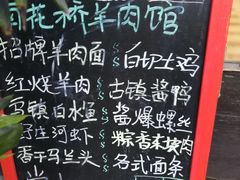 花桥羊肉馆
招牌羊肉面 白虾土鸡
红烧羊肉 古镇酱鸭
白水鱼 酱爆螺丝
河虾 粽香米块肉
香干马兰头 各式面条